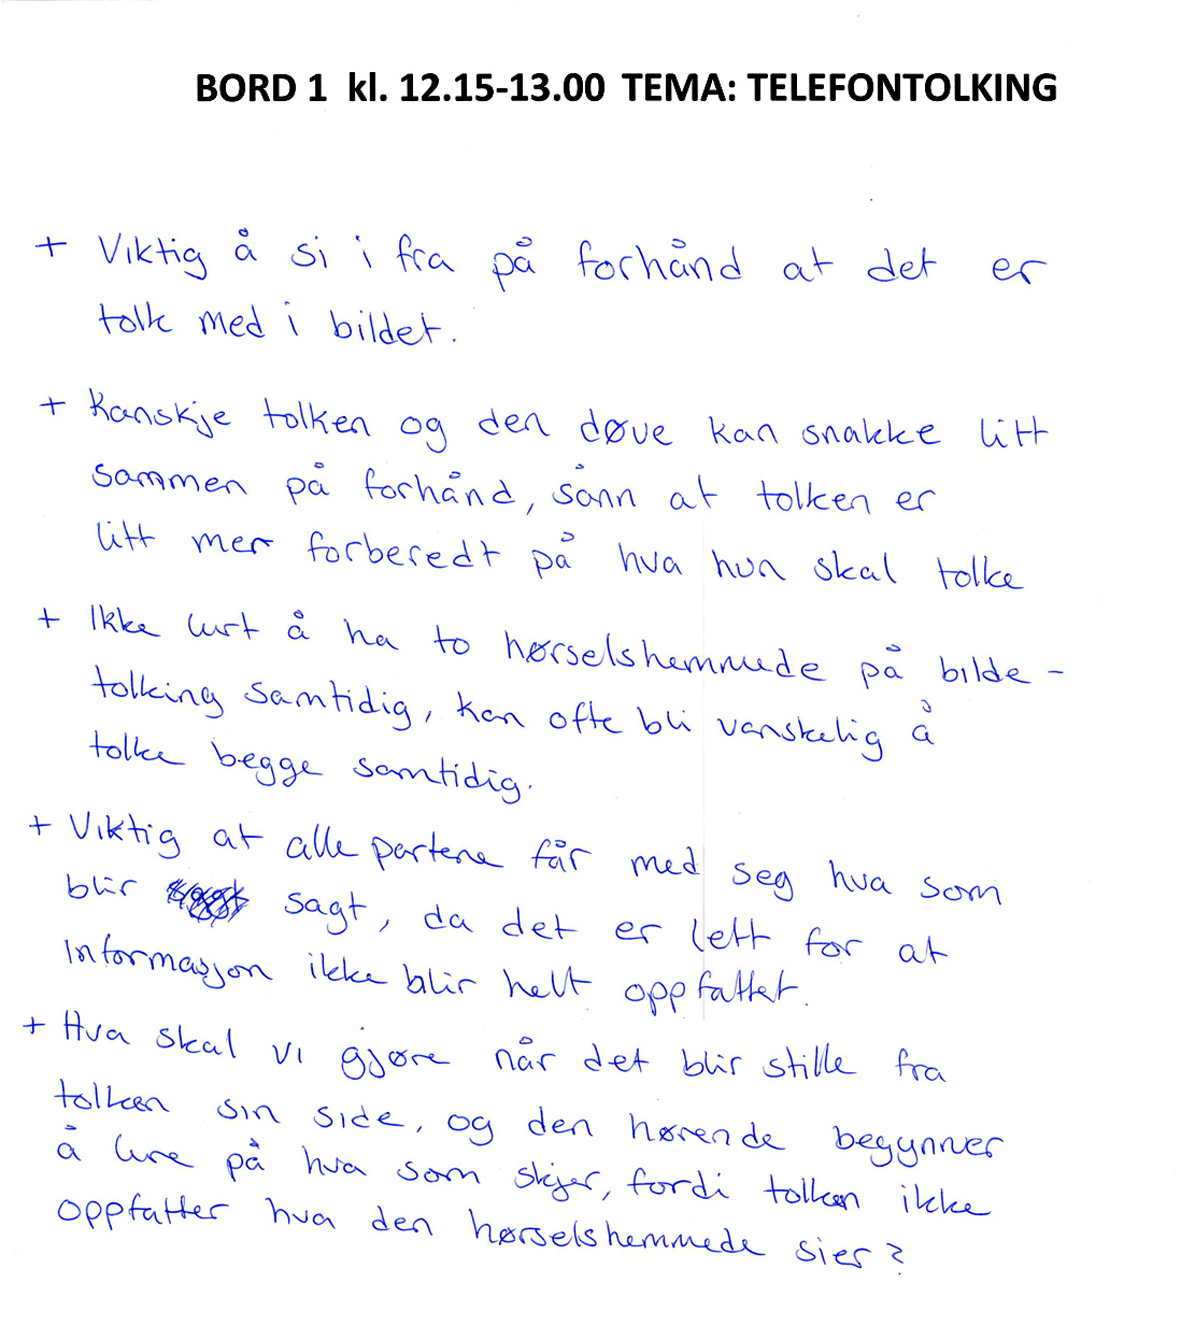 BORD 1 kl. 12.15-13.00 TEMA: TELEFONTOLKING
+ Viktig å si i fra på forhånd at det er
tolk med i bildet.
+ Kanskje tolken og den døve kan snakke litt
sammen på forhånd, sånn at tolken er
litt mer forberedt på hva hun skal tolke
+ Ikke lurt å ha to hørselshemmede på bilde-
tolking samtidig, kan ofte bli vanskelig å
tolke begge samtidig.
+ Viktig at alle partene får med seg hva som
blir sagt, da det er lett for at
informasjon ikke blir helt oppfattet.
+ Hva skal vi gjøre når det blir stille fra
tolken sin side, og den hørende begynner
å lure på hva som skjer, fordi tolken ikke
oppfatter hva den hørselshemmede sier?